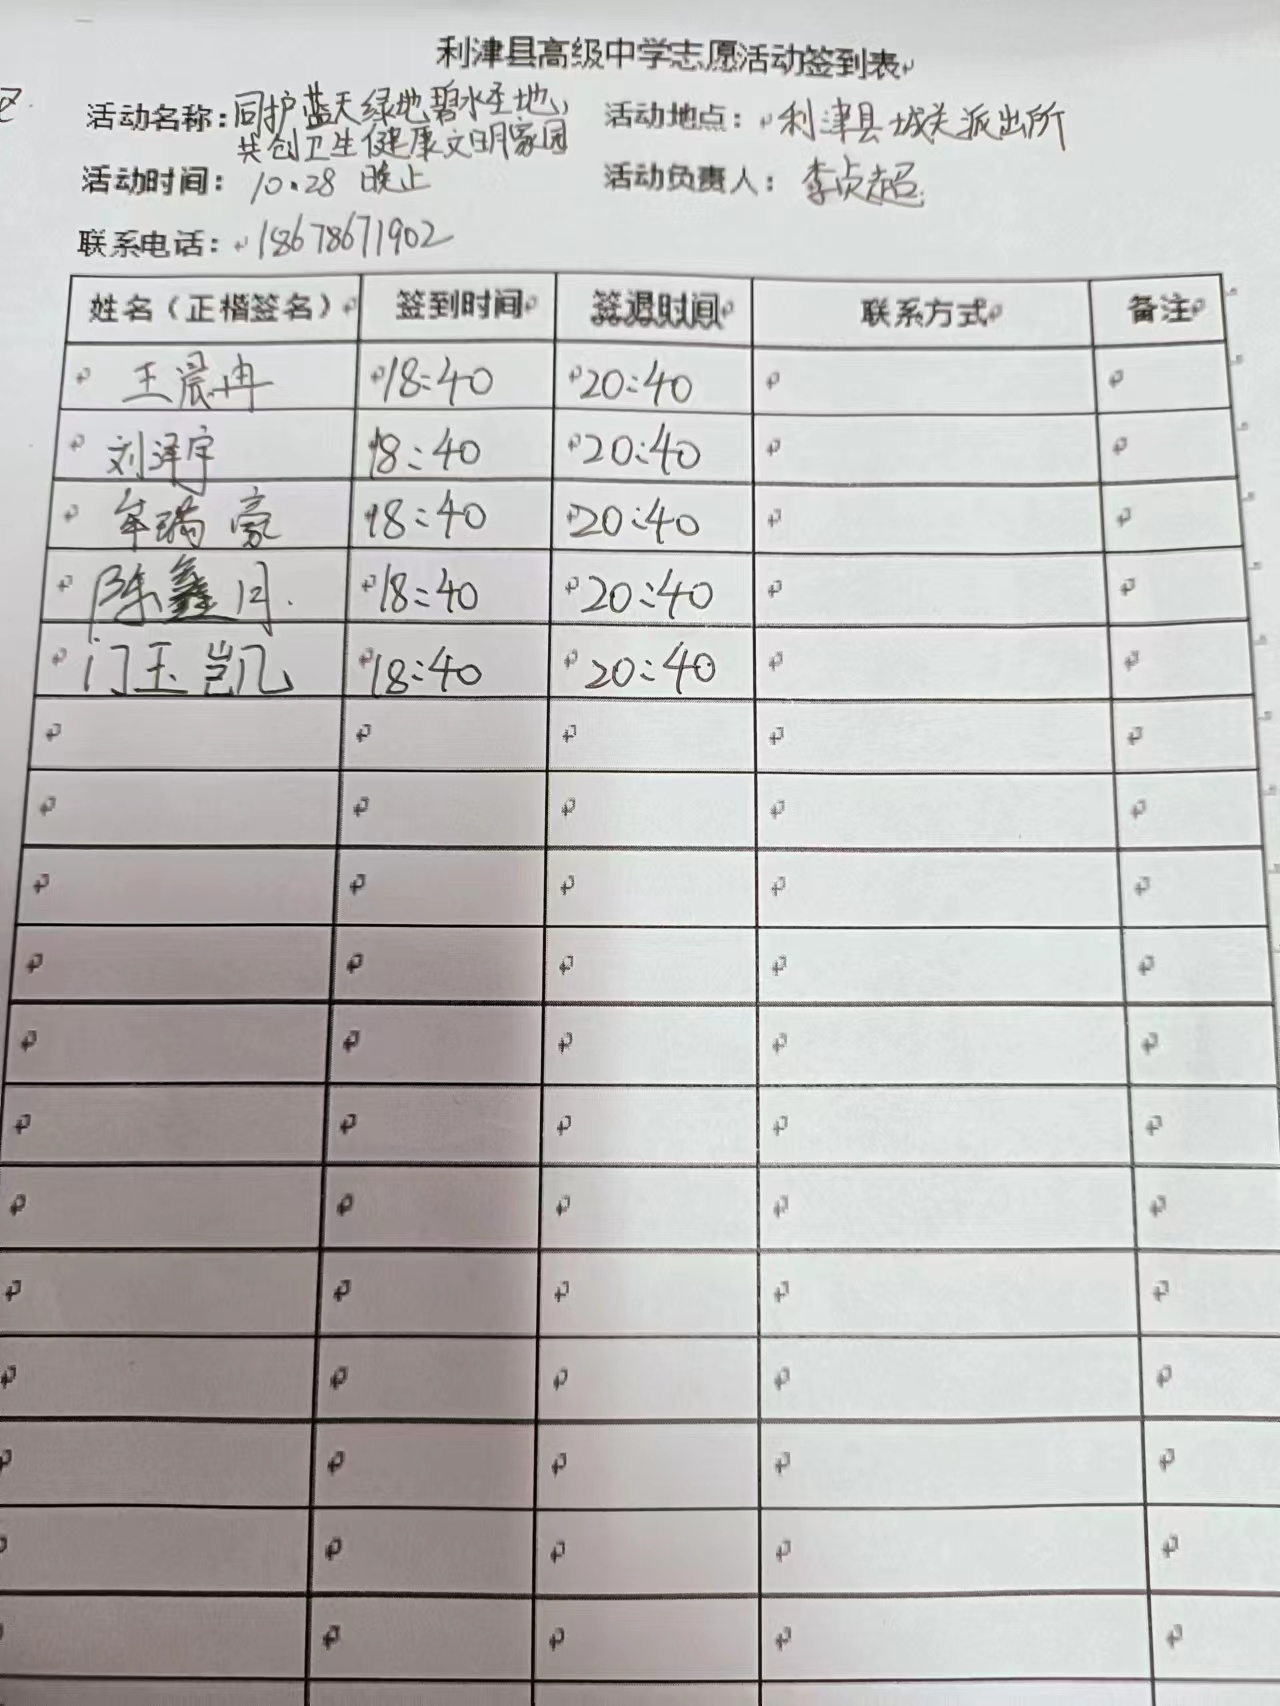 利津县高级中学志愿活动签到表
活动名称：同护蓝天绿地碧水圣地，活动地点：利津县城关派出所
共创卫生健康文明家园
活动时间：10.28 晚上 活动负责人：李贞超
联系电话：18678671902
姓名（正楷签名） 签到时间 签退时间 联系方式 备注
王晨冉 18:40 20:40
刘泽宇 18:40 20:40
牟瑞豪 18:40 20:40
陈鑫月 18:40 20:40
门玉凯 18:40 20:40